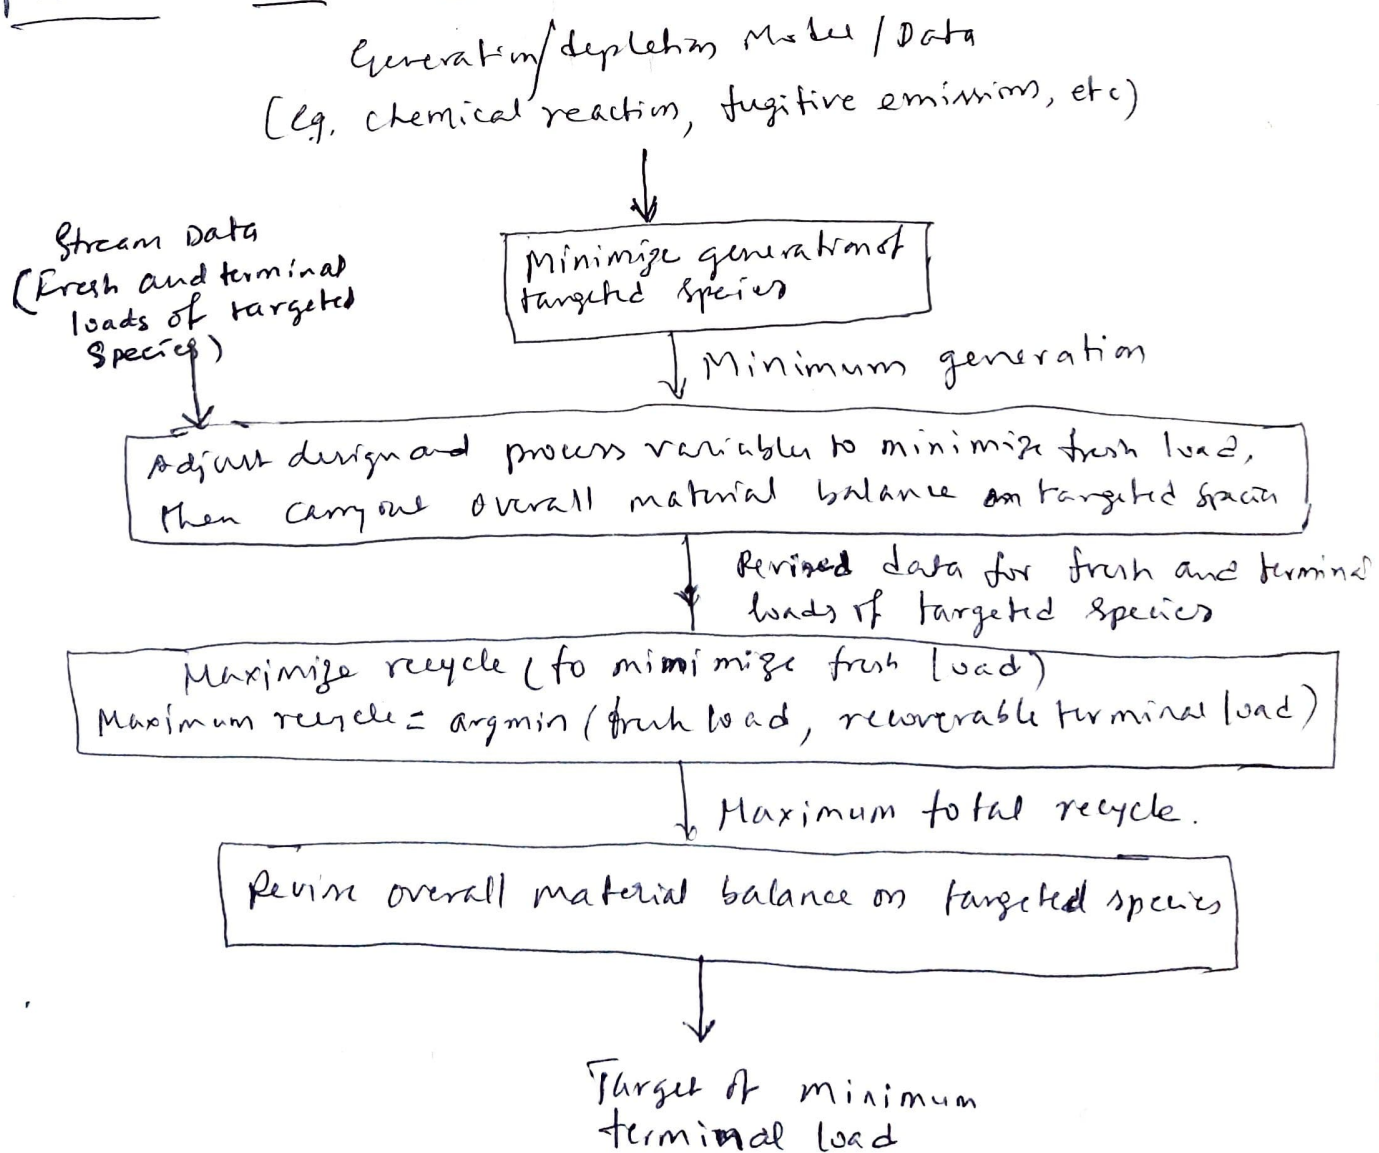 Generation/depletion Model / Data
(eg. chemical reaction, fugitive emissions, etc)
Stream Data
(Fresh and terminal
loads of targeted
Species)
Minimize generation of
targeted species
Minimum generation
Adjust design and process variables to minimize fresh load,
then carry out overall material balance on targeted species
Revised data for fresh and terminal
loads of targeted species
Maximize recycle (to minimize fresh load)
Maximum recycle = argmin (fresh load, recoverable terminal load)
Maximum total recycle.
Revise overall material balance on targeted species
Target of minimum
terminal load